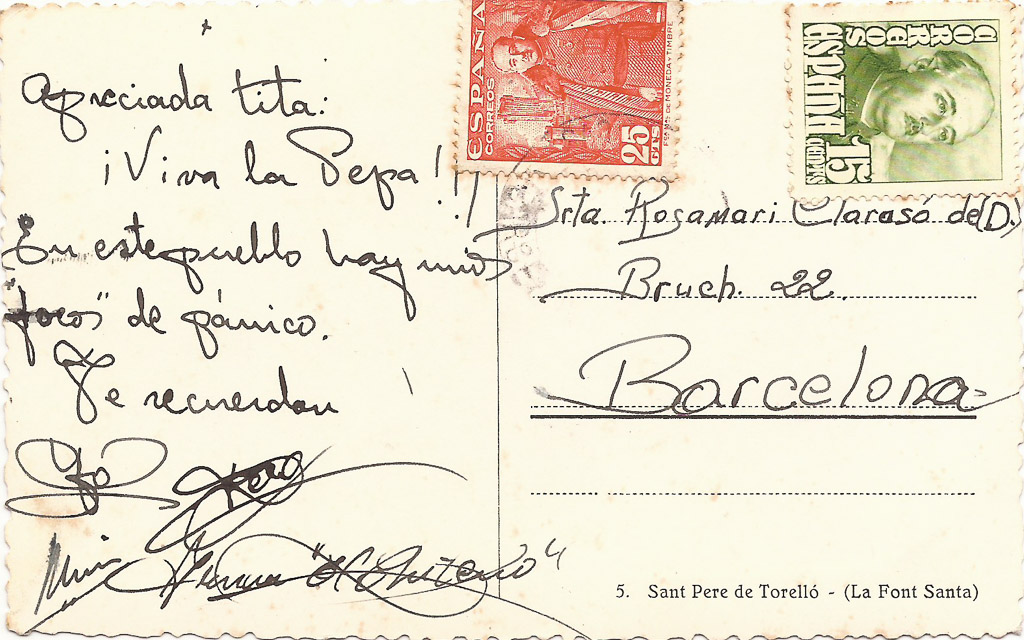 Apreciada tita:
¡Viva la Pepa!!
En este pueblo hay unos
"focos" de pánico.
Te recuerdan
Yó
Pero
ESPAÑA
CORREOS
25
CTS
FCA. NAL. DE MONEDA Y TIMBRE
CORREOS
ESPAÑA
15
CENTIMOS
Srta. Rosamari Clarasó de(D.)
Bruch. 22.
Barcelona
5. Sant Pere de Torelló - (La Font Santa)